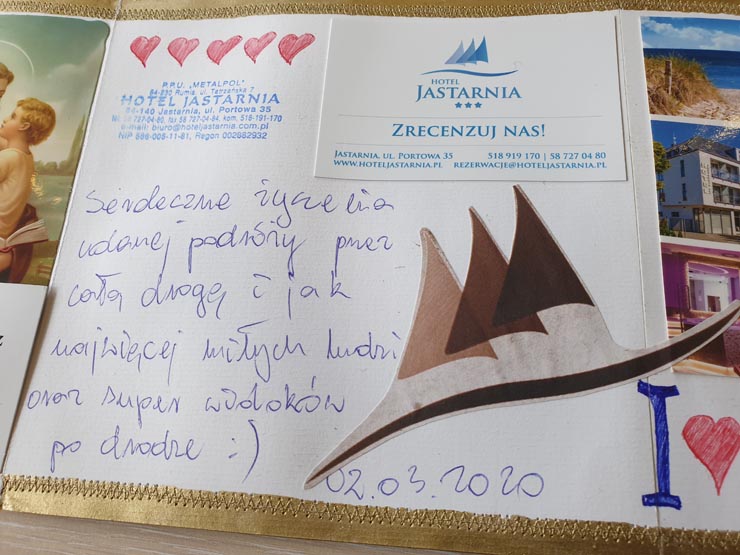 P.P.U. „METALPOL"
84-230 Rumia, ul. Tatrzańska 7
HOTEL JASTARNIA
84-140 Jastarnia, ul. Portowa 35
tel. 58 727-04-80, fax 58 727-04-84, kom. 518-191-170
e-mail: biuro@hoteljastarnia.com.pl
NIP 586-005-11-81, Regon 002862932
HOTEL
JASTARNIA
ZRECENZUJ NAS!
JASTARNIA, UL. PORTOWA 35 518 919 170 | 58 727 04 80
WWW.HOTELJASTARNIA.PL REZERWACJE@HOTELJASTARNIA.PL
Serdeczne życzenia
udanej podróży przez
całą drogę i jak
najwięcej miłych ludzi
oraz super widoków
po drodze :)
02.03.2020
I